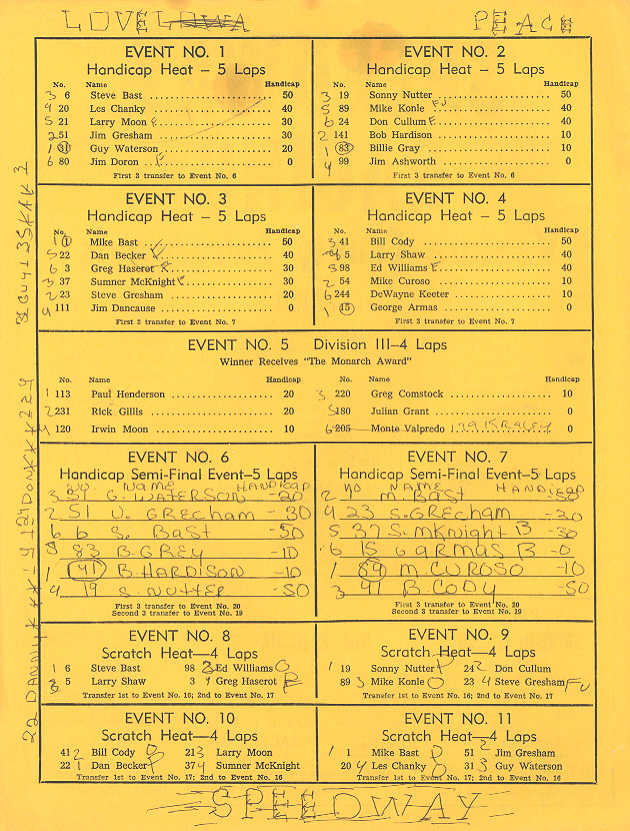 LOVE PEACE
EVENT NO. 1
Handicap Heat – 5 Laps
No. Name Handicap
3 6 Steve Bast 50
4 20 Les Chanky 40
5 21 Larry Moon 30
2 51 Jim Gresham 30
1 31 Guy Waterson 20
6 80 Jim Doron 0
First 3 transfer to Event No. 6
EVENT NO. 2
Handicap Heat – 5 Laps
No. Name Handicap
3 19 Sonny Nutter 50
5 89 Mike Konle 40
6 24 Don Cullum 40
2 141 Bob Hardison 10
1 83 Billie Gray 10
4 99 Jim Ashworth 0
First 3 transfer to Event No. 6
EVENT NO. 3
Handicap Heat – 5 Laps
No. Name Handicap
1 1 Mike Bast 50
5 22 Dan Becker 40
6 3 Greg Haserot 30
3 37 Sumner McKnight 30
2 23 Steve Gresham 20
4 111 Jim Dancause 0
First 3 transfer to Event No. 7
EVENT NO. 4
Handicap Heat – 5 Laps
No. Name Handicap
3 41 Bill Cody 50
5 Larry Shaw 40
5 98 Ed Williams 40
2 54 Mike Curoso 10
6 244 DeWayne Keeter 10
1 15 George Armas 0
First 3 transfer to Event No. 7
EVENT NO. 5 Division III–4 Laps
Winner Receives "The Monarch Award"
No. Name Handicap No. Name Handicap
1 113 Paul Henderson 20 3 220 Greg Comstock 10
2 231 Rick Gillis 20 5 180 Julian Grant 0
4 120 Irwin Moon 10 6 205 Monte Valpredo 0
EVENT NO. 6
Handicap Semi-Final Event–5 Laps
NO NAME HANDICAP
3 31 G. WATERSON -20
2 51 J. GRECHAM -30
6 6 S. BAST -50
5 83 B. GREY -10
1 141 B. HARDISON -10
4 19 S. NUTTER -50
First 3 transfer to Event No. 20
Second 3 transfer to Event No. 19
EVENT NO. 7
Handicap Semi-Final Event–5 Laps
NO NAME HANDICAP
2 1 M. BAST -50
4 23 S. GRECHAM -20
5 37 S. MKNIGHT B -30
6 15 G ARMAS B -0
1 54 M. CUROSO -10
3 41 B. CODY -50
First 3 transfer to Event No. 20
Second 3 transfer to Event No. 19
EVENT NO. 8
Scratch Heat—4 Laps
1 6 Steve Bast 98 2 Ed Williams
3 5 Larry Shaw 3 4 Greg Haserot
Transfer 1st to Event No. 16; 2nd to Event No. 17
EVENT NO. 9
Scratch Heat—4 Laps
1 19 Sonny Nutter 24 2 Don Cullum
89 3 Mike Konle 23 4 Steve Gresham
Transfer 1st to Event No. 16; 2nd to Event No. 17
EVENT NO. 10
Scratch Heat—4 Laps
41 2 Bill Cody 21 3 Larry Moon
22 1 Dan Becker 37 4 Sumner McKnight
Transfer 1st to Event No. 17; 2nd to Event No. 16
EVENT NO. 11
Scratch Heat—4 Laps
1 1 Mike Bast 51 2 Jim Gresham
20 4 Les Chanky 31 3 Guy Waterson
Transfer 1st to Event No. 17; 2nd to Event No. 16
SPEEDWAY